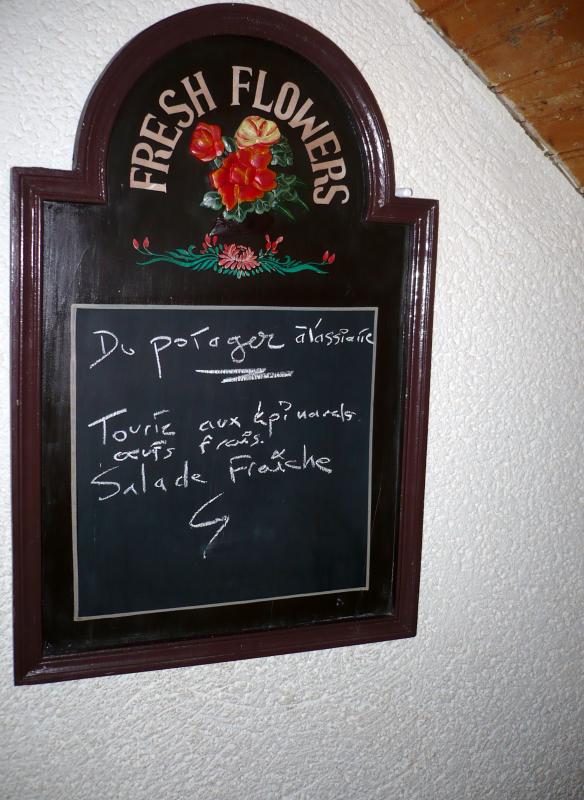 FRESH FLOWERS
Du potager à l'assiette
Tourte aux épinards
œufs frais.
Salade Fraîche